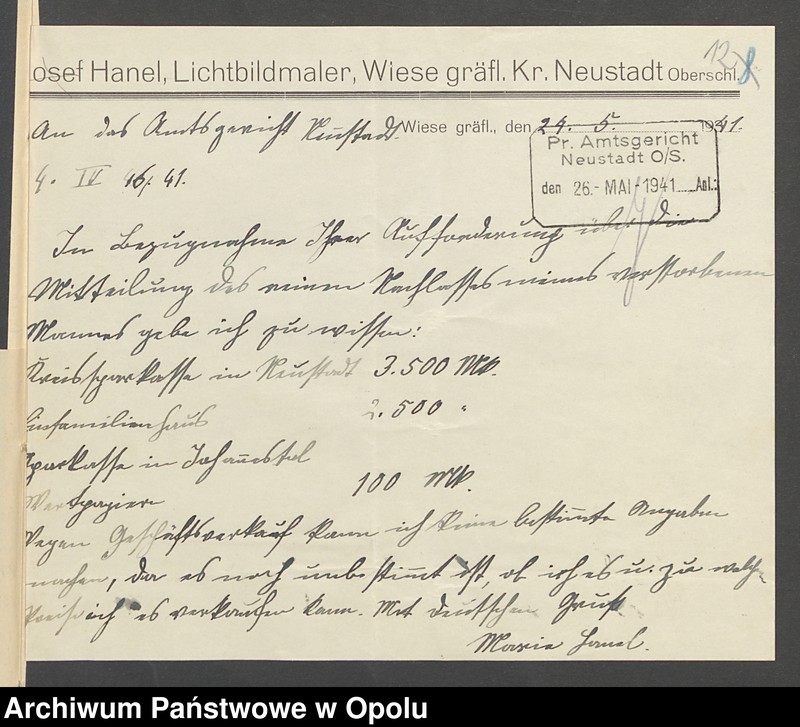 Josef Hanel, Lichtbildmaler, Wiese gräfl. Kr. Neustadt Oberschl.
12 8
An das Amtsgericht Neustadt. Wiese gräfl., den 24. 5. 1941.
Pr. Amtsgericht
Neustadt O/S.
den 26.-MAI-1941 Anl.:
4. IV 46/41.
In Bezugnahme Ihrer Aufforderung über die
Mitteilung des reinen Nachlasses meines verstorbenen
Mannes gebe ich zu wissen:
Kreissparkasse in Neustadt 3.500 Mk.
Einfamilienhaus 2.500 "
Sparkasse in Johannestal
Wertpapiere 100 Mk.
Wegen Geschäftsverkauf kann ich keine bestimmte Angaben
machen, da es noch unbestimmt ist, ob ich es u. zu welch.
Preise ich es verkaufen kann. Mit deutschem Gruß
Marie Hanel.
Archiwum Państwowe w Opolu